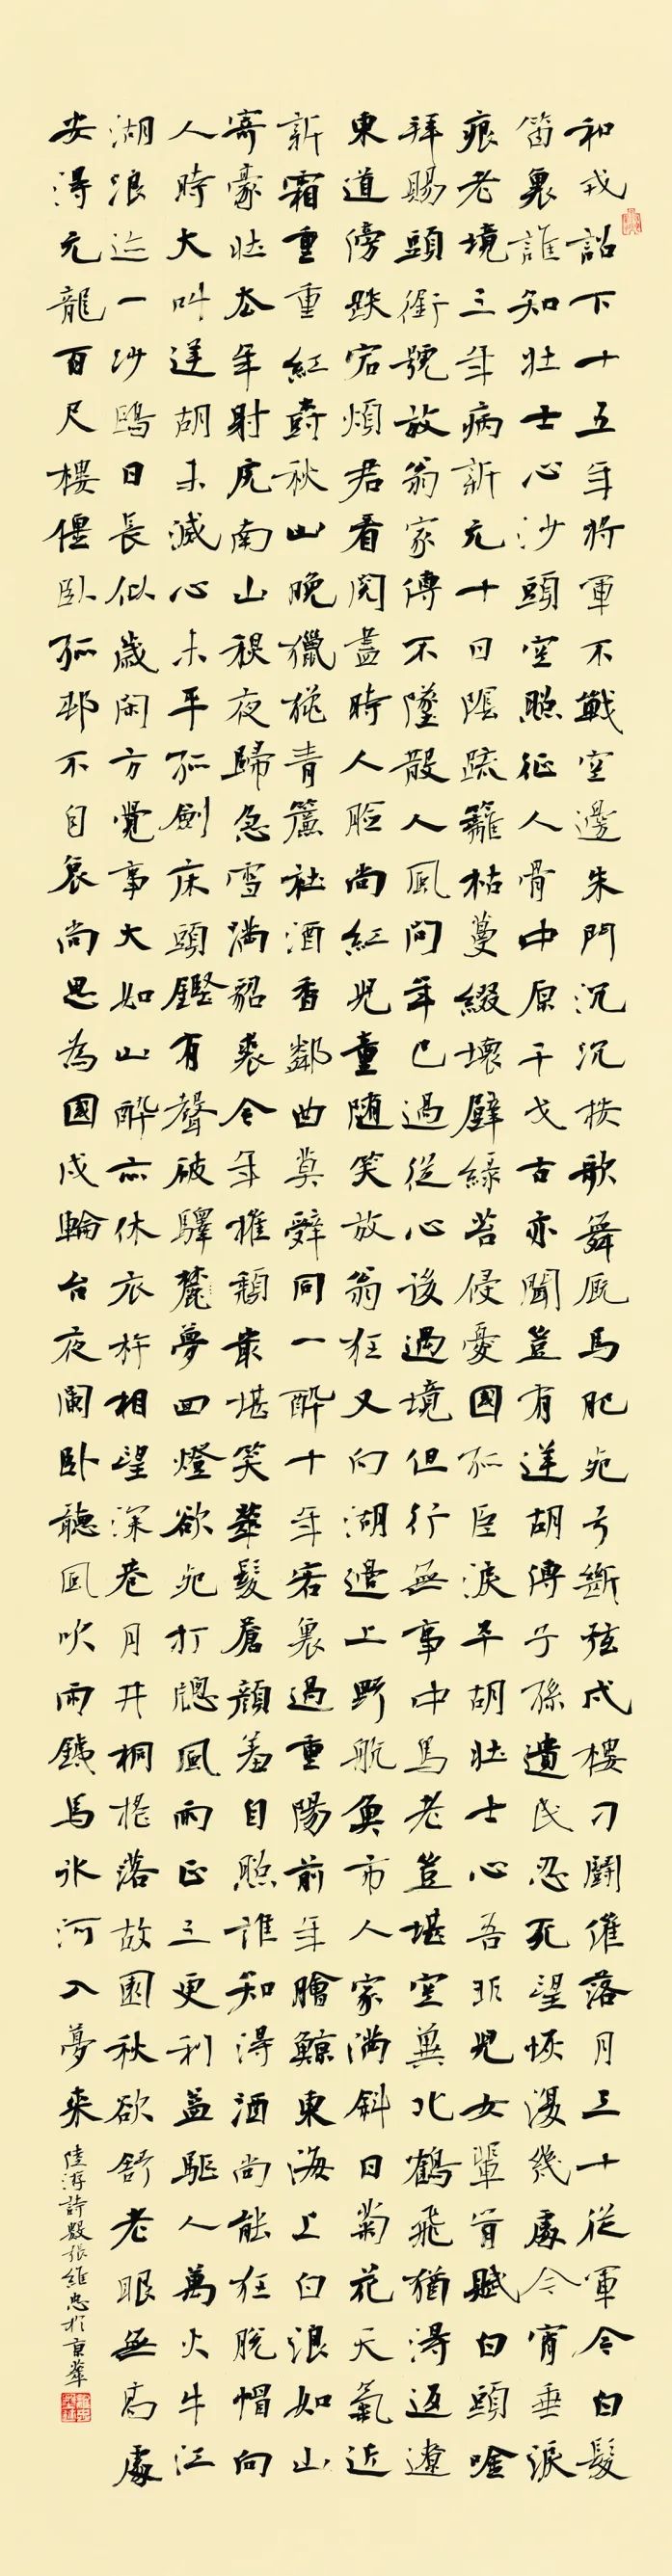 和戎詔下十五年將軍不戰空邊朱門沉沉按歌舞廄馬肥死弓斷弦戍樓刁鬪催落月三十從軍今白髮
笛裏誰知壯士心沙頭空照征人骨中原干戈古亦聞豈有逆胡傳子孫遺民忍死望恢復幾處今宵垂淚
痕老境三年病新元十日陰疏籬枯蔓綴壞壁綠苔侵憂國孤臣淚平胡壯士心吾非兒女輩肯賦白頭唫
拜賜頭銜號放翁家傳不墜散人風問年已過從心後遇境但行無事中馬老豈堪空冀北鶴飛猶得返遼
東道傍跌宕煩君看閱盡時人臉尚紅兒童隨笑放翁狂又向湖邊上野航魚市人家滿斜日菊花天氣近
新霜重重紅樹秋山晚獵獵青簾社酒香鄰曲莫辭同一醉十年客裏過重陽前年膾鯨東海上白浪如山
寄豪壯去年射虎南山秋夜歸急雪滿貂裘今年摧頹最堪笑華髮蒼顏羞自照誰知得酒尚能狂脫帽向
人時大叫逆胡未滅心未平孤劍床頭鏗有聲破驛麓夢回燈欲死打窗風雨正三更利益驅人萬火牛江
湖浪迹一沙鷗日長似歲閑方覺事大如山醉亦休衣杵相望深巷月井桐搖落故園秋欲舒老眼無高處
安得元龍百尺樓僵臥孤邨不自哀尚思為國戍輪台夜闌臥聽風吹雨鐵馬冰河入夢來
陸游詩數張維忠於京華